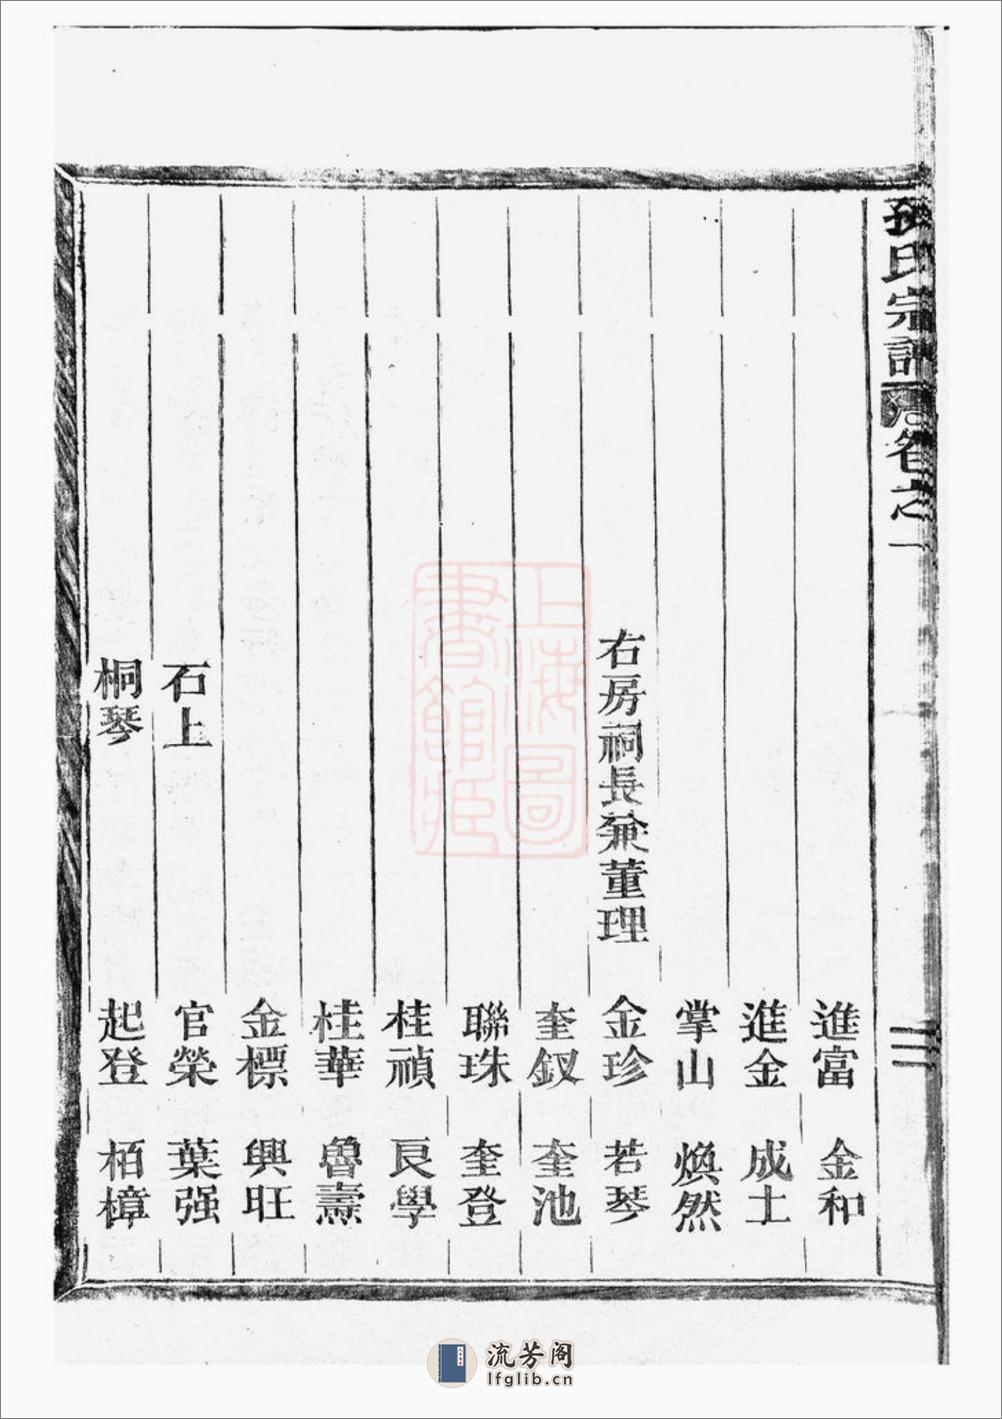 孫氏宗譜 卷之一
二
進富 金和
進金 成士
掌山 煥然
右房祠長兼董理 金珍 若琴
奎釵 奎池
聯珠 奎登
桂禎 良學
桂華 魯壽
金標 興旺
石上 官榮 葉强
桐琴 起登 栢樟
上海圖書館藏
流芳阁
lfglib.cn